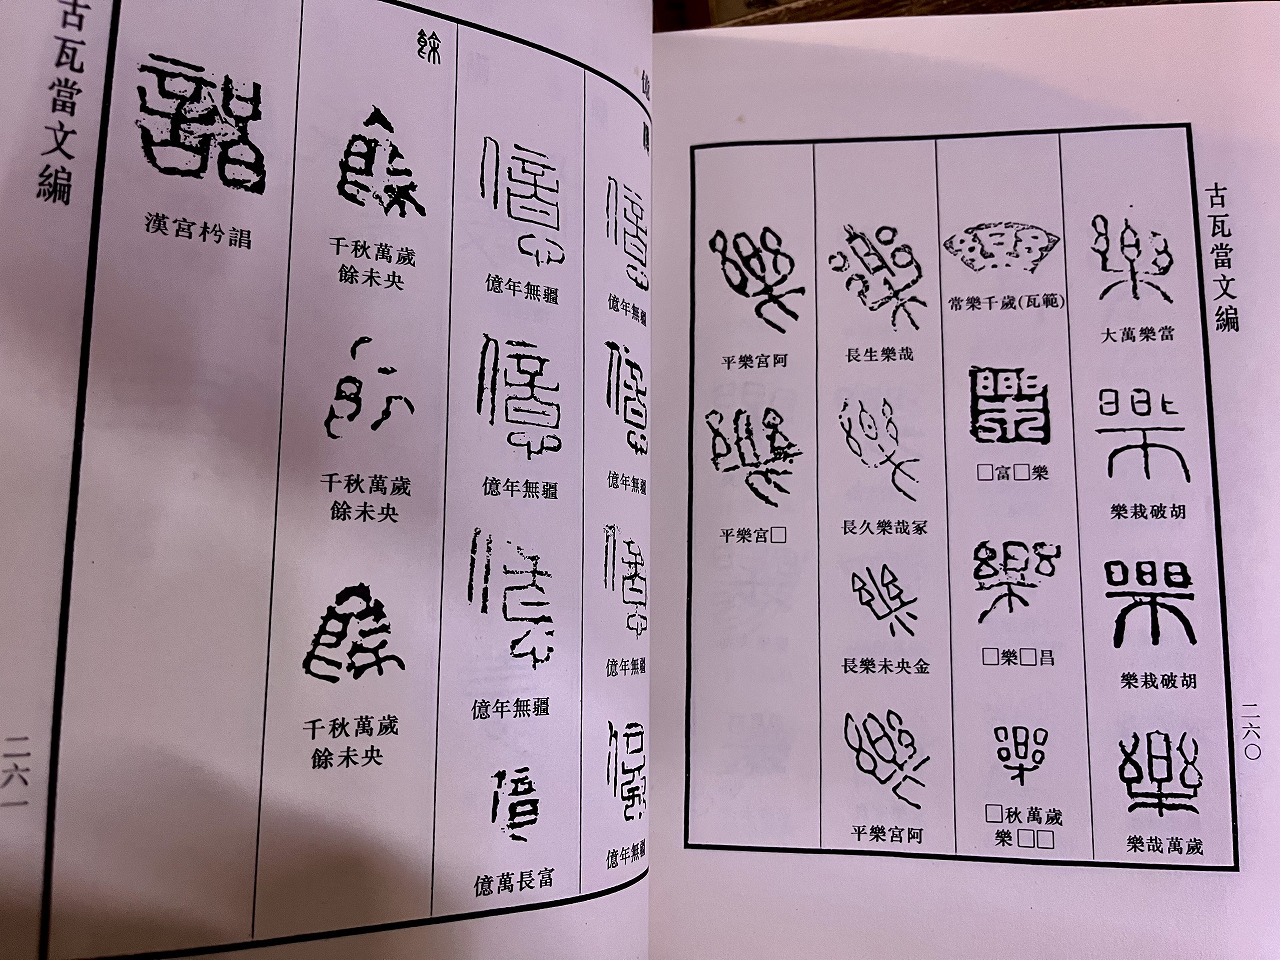 古瓦當文編
二六〇
大萬樂當
樂栽破胡
樂栽破胡
樂哉萬歲
常樂千歲(瓦範)
□富□樂
□樂□昌
□秋萬歲
樂□□
長生樂哉
長久樂哉冢
長樂未央金
平樂宮阿
平樂宮阿
平樂宮□
億年無疆
億年無疆
億年無疆
億年無疆
億年無疆
億年無疆
億年無疆
億萬長富
餘
千秋萬歲
餘未央
千秋萬歲
餘未央
千秋萬歲
餘未央
漢宮枍詣
古瓦當文編
二六一